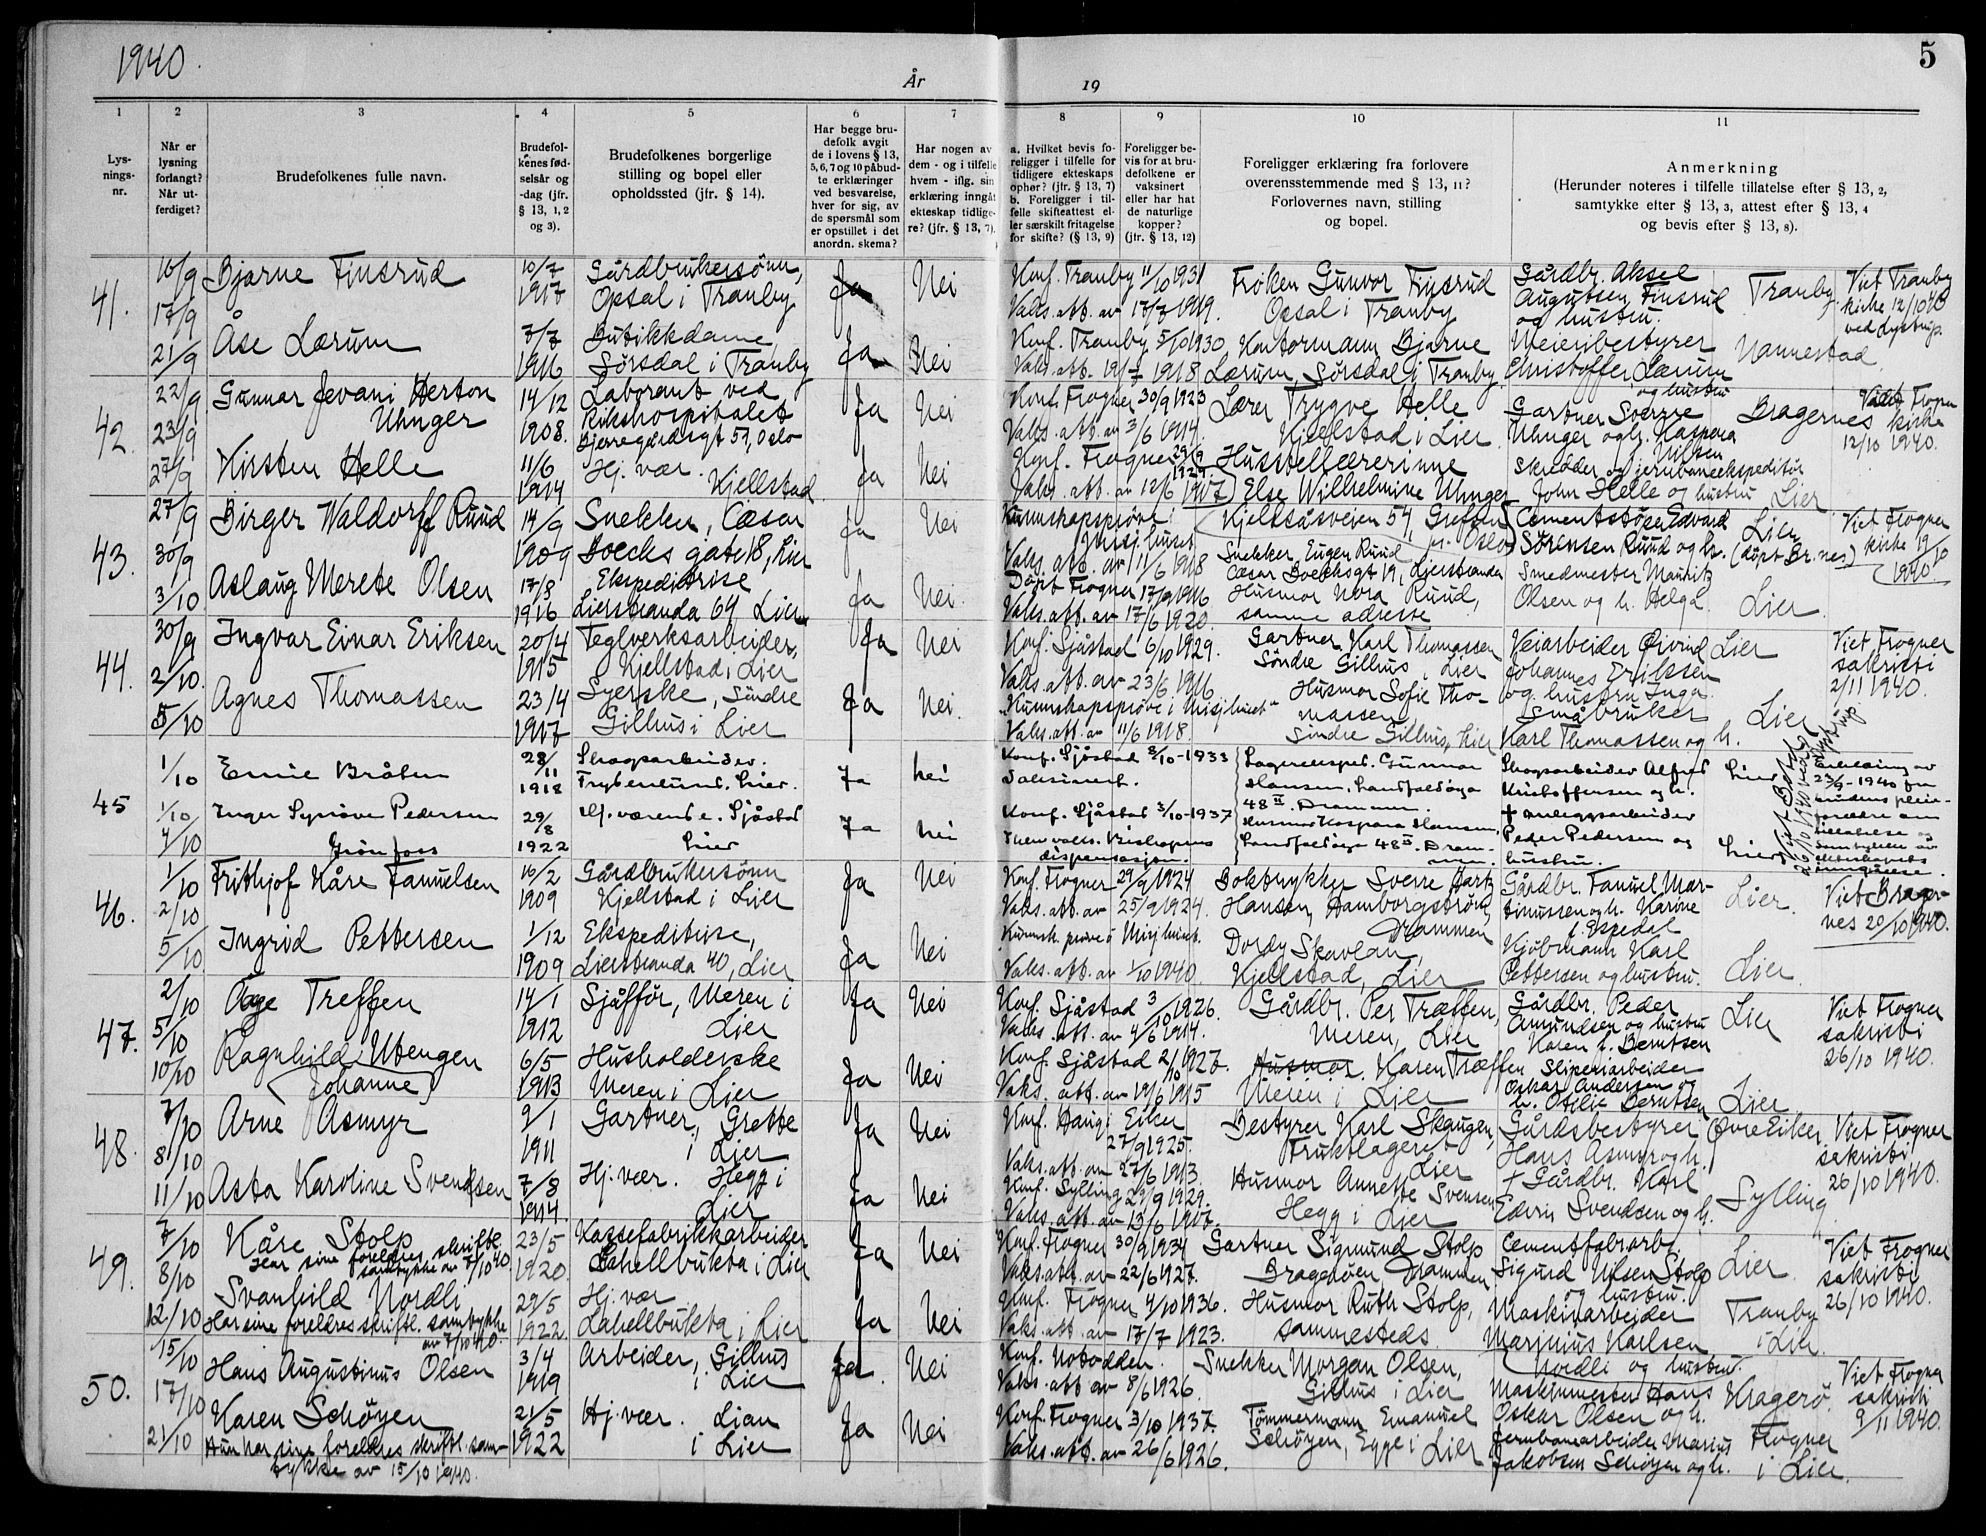 1940.
År
19
5
1
2
3
4
5
6
7
8
9
10
11
Lys-
nings-
nr.
Når er
lysning
forlangt?
Når ut-
ferdiget?
Brudefolkenes fulle navn.
Brudefol-
kenes fød-
selsår og
-dag (jfr.
§ 13, 1, 2
og 3).
Brudefolkenes borgerlige
stilling og bopel eller
opholdssted (jfr. § 14).
Har begge bru-
defolk avgit
de i lovens § 13,
5, 6, 7 og 10 påbud-
te erklæringer
ved besvarelse,
hver for sig, av
de spørsmål som
er opstillet i det
anordn. skema?
Har nogen av
dem - og i tilfelle
hvem - iflg. sin
erklæring inngåt
ekteskap tidlige-
re? (jfr. § 13, 7).
a. Hvilket bevis fo-
religger i tilfelle for
tidligere ekteskaps
ophør? (jfr. § 13, 7)
b. Foreligger i til-
felle skifteattest el-
ler særskilt fritagelse
for skifte? (§ 13, 9)
Foreligger be-
vis for at bru-
defolkene er
vaksinert
eller har hat
de naturlige
kopper?
(jfr. § 13, 12)
Foreligger erklæring fra forlovere
overensstemmende med § 13, 11?
Forlovernes navn, stilling
og bopel.
Anmerkning
(Herunder noteres i tilfelle tillatelse efter § 13, 2,
samtykke efter § 13, 3, attest efter § 13, 4
og bevis efter § 13, 8).
41.
16/9
17/9
21/9
Bjarne Finsrud
10/7
1917
Gårdbrukersønn,
Opsal i Tranby
Ja
Nei
Konf. Tranby 11/10 1931
Vaks. att. av 17/7 1919.
Frøken Gunvor Finsrud
Opsal i Tranby
Gårdbr. Aksel
Augutsen Finsrud
og hustru.
Tranby
Viet Tranby
kirke 12/10 40
ved Lystrup.
Åse Lærum
7/7
1916
Butikkdame,
Sørsdal i Tranby
Ja
Nei
Konf. Tranby 5/10 1930
Vaks. att. 19/7 1918
Kontormann Bjarne
Lærum, Sørsdal i Tranby
Meieribestyrer
Christoffer Lærum
og hustru
Nannestad
42.
22/9
23/9
27/9
Gunnar Jevani Herton
Unger
14/12
1908.
Laborant ved
Rikshospitalet
Bjerregårdsgt 57, Oslo
Ja
Nei
Konf. Frogner 30/9 1923
Vaks. att. av 3/6 1914.
Lærer Trygve Helle
Kjellstad i Lier
Gartner Sverre
Unger og h. Kaspara
Nilsen
Bragernes
Viet Frogner
kirke
12/10 1940.
Kirsten Helle
11/6
1914
Hj. vær.
Kjellstad
Ja
Nei
Konf. Frogner 29/9
1929
Vaks. att. av 12/6 1917
Husstellærerinne
Else Wilhelmine Unger
Kjelsåsveien 57, Grefsen
pr. Oslo
Skredder og jernbaneekspeditør
John Helle og hustru
Lier
43.
27/9
30/9
3/10
Birger Waldorff Ruud
14/9
1909
Snekker, Cæsar
Boecks gate 18, Lier
Ja
Nei
Kunnskapsprøve i
Misj. huset
Vaks. att. av 11/6 1918
Snekker Eugen Ruud
Cæsar Boecksgt 19, Lierstranda
Cementstøper Edvard
Sørensen Ruud og h.
Lier
(døpt Br. nes.)
Viet Frogner
kirke 19/10
1940
Aslaug Merete Olsen
17/8
1916
Ekspeditrise
Lierstranda 64 Lier
Ja
Nei.
Døpt Frogner 17/9 1916
Vaks. att. av 17/6 1920.
Husmor Nora Ruud,
samme adresse
Smedmester Mauritz
Olsen og h. Helga.
Lier
44.
30/9
2/10.
5/10
Ingvar Einar Eriksen
20/4
1915
Teglverksarbeider,
Kjellstad, Lier
Ja
Nei
Konf. Sjåstad 6/10 1929.
Vaks. att. av 23/6 1916
Gartner Karl Thomassen
Søndre Gilhus, Lier
Veiarbeider Øivind
Johannes Eriksen
og hustru Inga.
Lier
Viet Frogner
sakristi
2/11 1940.
Agnes Thomassen
23/4
1917
Syerske, Søndre
Gilhus i Lier
Ja
Nei.
Kunnskapsprøve i "Misj. huset"
Vaks. att. av 11/6 1918.
Husmor Sofie Tho-
massen
Søndre Gilhus, Lier
Småbruker
Karl Thomassen og h.
Lier
45
1/10
1/10
4/10
Ernie Bråten
28/11
1918
Skogsarbeider.
Frydenlund, Lier.
Ja
nei
Konf. Sjåstad 8/10-1933
Vaksinert.
Lagerekspd. Gunnar
Hansen, Landfaldøya
48 II. Drammen.
Skogsarbeider Alfred
Kristoffersen og h.
Lier
Inger Synnøve Pedersen
Grønfoss
29/8
1922
Hj. værende. Sjåstad
Lier
Ja
nei
Konf. Sjåstad 3/10-1937
Ikke vaks. Biskopens
dispensasjon.
Husmor Kaspara Hansen,
Landfaldøya 48 II. Dram-
men.
+ anleggsarbeider
Peder Pedersen og
hustru.
Lier
46.
1/10
2/10
5/10
Frithjof Kåre Fanuelsen
16/2
1909
Gårdbrukersønn
Kjellstad i Lier
Ja
Nei
Konf. Frogner 29/9 1924
Vaks. att. av 25/9 1924.
Boktrykker Sverre Hartz
Hansen, Hamborgstrøm,
Drammen
Gårdbr. Fanuel Mar-
tinussen og h. Karine
f. Espedal
Lier.
Viet Brager-
nes 20/10 1940.
Ingrid Pettersen
1/12
1909
Ekspeditrise,
Lierstranda 40, Lier
Ja
Nei
Kunnsk. prøve i Misj. huset.
Vaks. att. av 1/10 1940.
Dordy Skavlan,
Kjellstad, Lier
Kjøbmann Karl
Pettersen og hustru.
Lier
47.
2/10
5/10
10/10
Åge Treffen
14/1
1912
Sjåffør, Meren i
Lier
Ja
Nei
Konf. Sjåstad 3/10 1926.
Vaks. att. av 4/6 1914.
Gårdbr. Per Træffen,
Meren, Lier
Gårdbr. Peder
Amundsen og hustru
Karen f. Berntsen
Lier
Viet Frogner
sakristi
26/10 1940.
Ragnhild Utengen
(Johanne)
6/5
1913
Husholderske
Meren i Lier
Ja
Nei
Konf. Sjåstad 2/10 1927.
Vaks. att. av 19/6 1915
Husmor Karen Træffen
Meren i Lier
Sliperiarbeider
Oskar Andersen og
h. Otilie Berntsen
Lier
48.
7/10
8/10
11/10
Arne Asmyr
9/1
1911
Gartner, Grette
i Lier
Ja
Nei
Konf. Haug i Eiker
27/9 1925.
Vaks. att. av 27/6 1913.
Bestyrer Karl Skaugen,
Fruktlageret
Lier
Gårdsbestyrer
Hans Asmyr og h.
Øvre Eiker
Viet Frogner
sakristi
26/10 1940.
Asta Karoline Svendsen
7/8
1914.
Hj. vær. Hegg i
Lier
Ja
Nei
Konf. Sylling 29/9 1929.
Vaks. att. av 13/6 1917.
Husmor Annette Svensen
Hegg i Lier
+ Gårdbr. Karl
Edvin Svendsen og h.
Sylling
49.
7/10
8/10
12/10
Kåre Stolp
Har sine foreldres skriftl.
samtykke av 7/10 40.
23/5
1920.
Kassefabrikkarbeider
Lahellbukta i Lier
Ja
Nei
Konf. Frogner 30/9 1934
Vaks. att. av 22/6 1927.
Gartner Sigmund Stolp
Bragerøen, Drammen
Cementfabrarb.
Sigurd Nilsen Stolp
og hustru.
Lier
Viet Frogner
sakristi
26/10 1940.
Svanhild Nordli
Har sine foreldres skriftl. samtykke
av 7/10 40.
29/5
1922
Hj. vær
Lahellbukta, Lier
Ja
Nei
Konf. Frogner 4/10 1936.
Vaks. att. av 17/7 1923.
Husmor Ruth Stolp,
sammesteds
Maskinarbeider
Marinius Karlsen
Nordli og hustru.
Tranby
i Lier.
50.
15/10
17/10
21/10
Hans Augustinus Olsen
3/4
1919
Arbeider, Gilhus
i Lier
Ja.
Nei
Konf. Notodden.
Vaks. att av 8/6 1926.
Snekker Morgan Olsen,
Gilhus i Lier
Maskinmester Hans
Oskar Olsen og h.
Kragerø
Viet Frogner
sakristi
9/11 1940.
Karen Schøyen
Hun har sine foreldres skriftl. sam-
tykke av 15/10 1940.
21/5
1922
Hj. vær. Lian
i Lier
Ja
Nei
Konf. Frogner 3/10 1937.
Vaks. att. av 26/6 1926.
Tømmermann Emanuel
Schøyen, Egge i Lier
Jernbanearbeider Marius
Jakobsen Schøyen og h.
Frogner
i Lier.